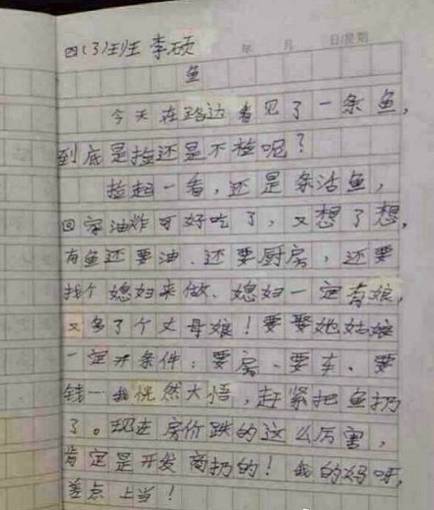 四(3)班 李硕
年 月 日(星期
鱼
今天在路边看见了一条鱼,
到底是捡还是不捡呢?
捡起一看,还是条活鱼,
回家油炸可好吃了,又想了想,
有鱼还要油、还要厨房,还要
找个媳妇来做、媳妇一定有娘,
又多了个丈母娘!要娶她姑娘
一定开条件:要房、要车、要
钱一我恍然大悟,赶紧把鱼扔
了。现在房价跌的这么厉害,
肯定是开发商扔的!我的妈呀,
差点上当!